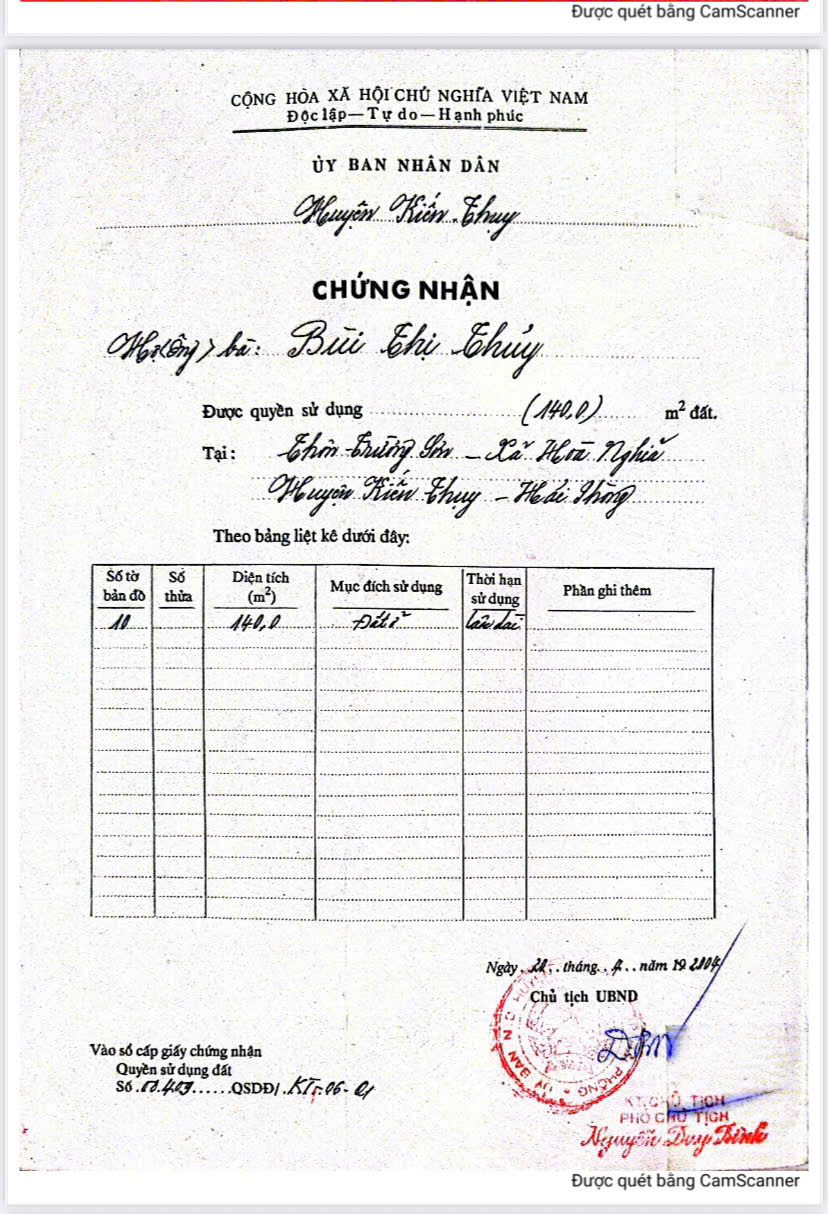 Được quét bằng CamScanner
CỘNG HÒA XÃ HỘI CHỦ NGHĨA VIỆT NAM
Độc lập — Tự do — Hạnh phúc
ỦY BAN NHÂN DÂN
Huyện Kiến Thụy
CHỨNG NHẬN
Hộ (ông) bà: Bùi Thị Thủy
Được quyền sử dụng (140,0) m² đất.
Tại: Thôn Trường Sơn - Xã Hoà Nghĩa
Huyện Kiến Thụy - Hải Phòng
Theo bảng liệt kê dưới đây:
Số tờ bản đồ Số thửa Diện tích (m²) Mục đích sử dụng Thời hạn sử dụng Phần ghi thêm
10 140,0 Đất ở lâu dài
Ngày tháng 4 năm 19 2004
Chủ tịch UBND
Vào sổ cấp giấy chứng nhận
Quyền sử dụng đất
Số QSDĐ/ KT-06-01
KT.CHỦ TỊCH
PHÓ CHỦ TỊCH
Nguyễn Duy Bình
Được quét bằng CamScanner